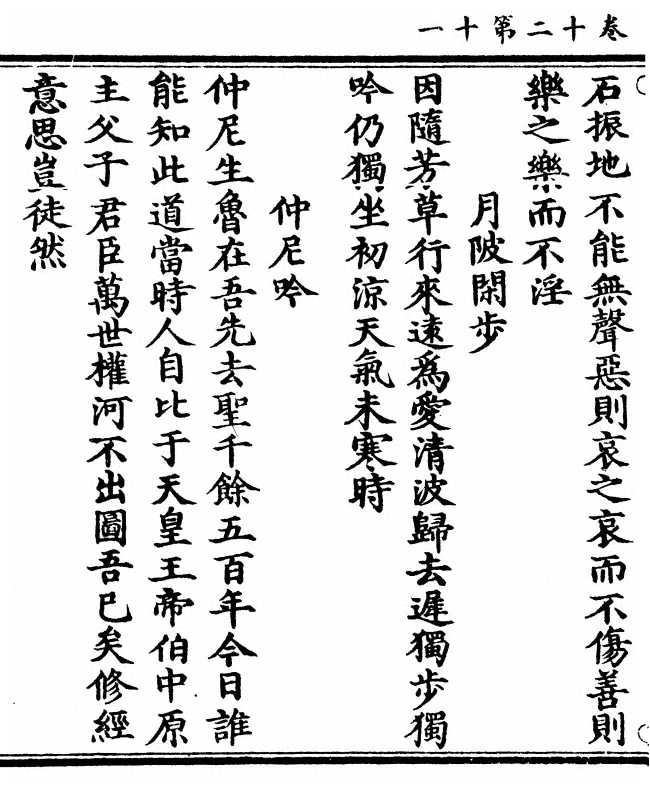 卷十二第十一
石振地不能無聲惡則哀之哀而不傷善則
樂之樂而不淫
月陂閑步
因隨芳草行來遠爲愛清波歸去遲獨步獨
吟仍獨坐初涼天氣未寒時
仲尼吟
仲尼生魯在吾先去聖千餘五百年今日誰
能知此道當時人自比于天皇王帝伯中原
主父子君臣萬世權河不出圖吾已矣修經
意思豈徒然